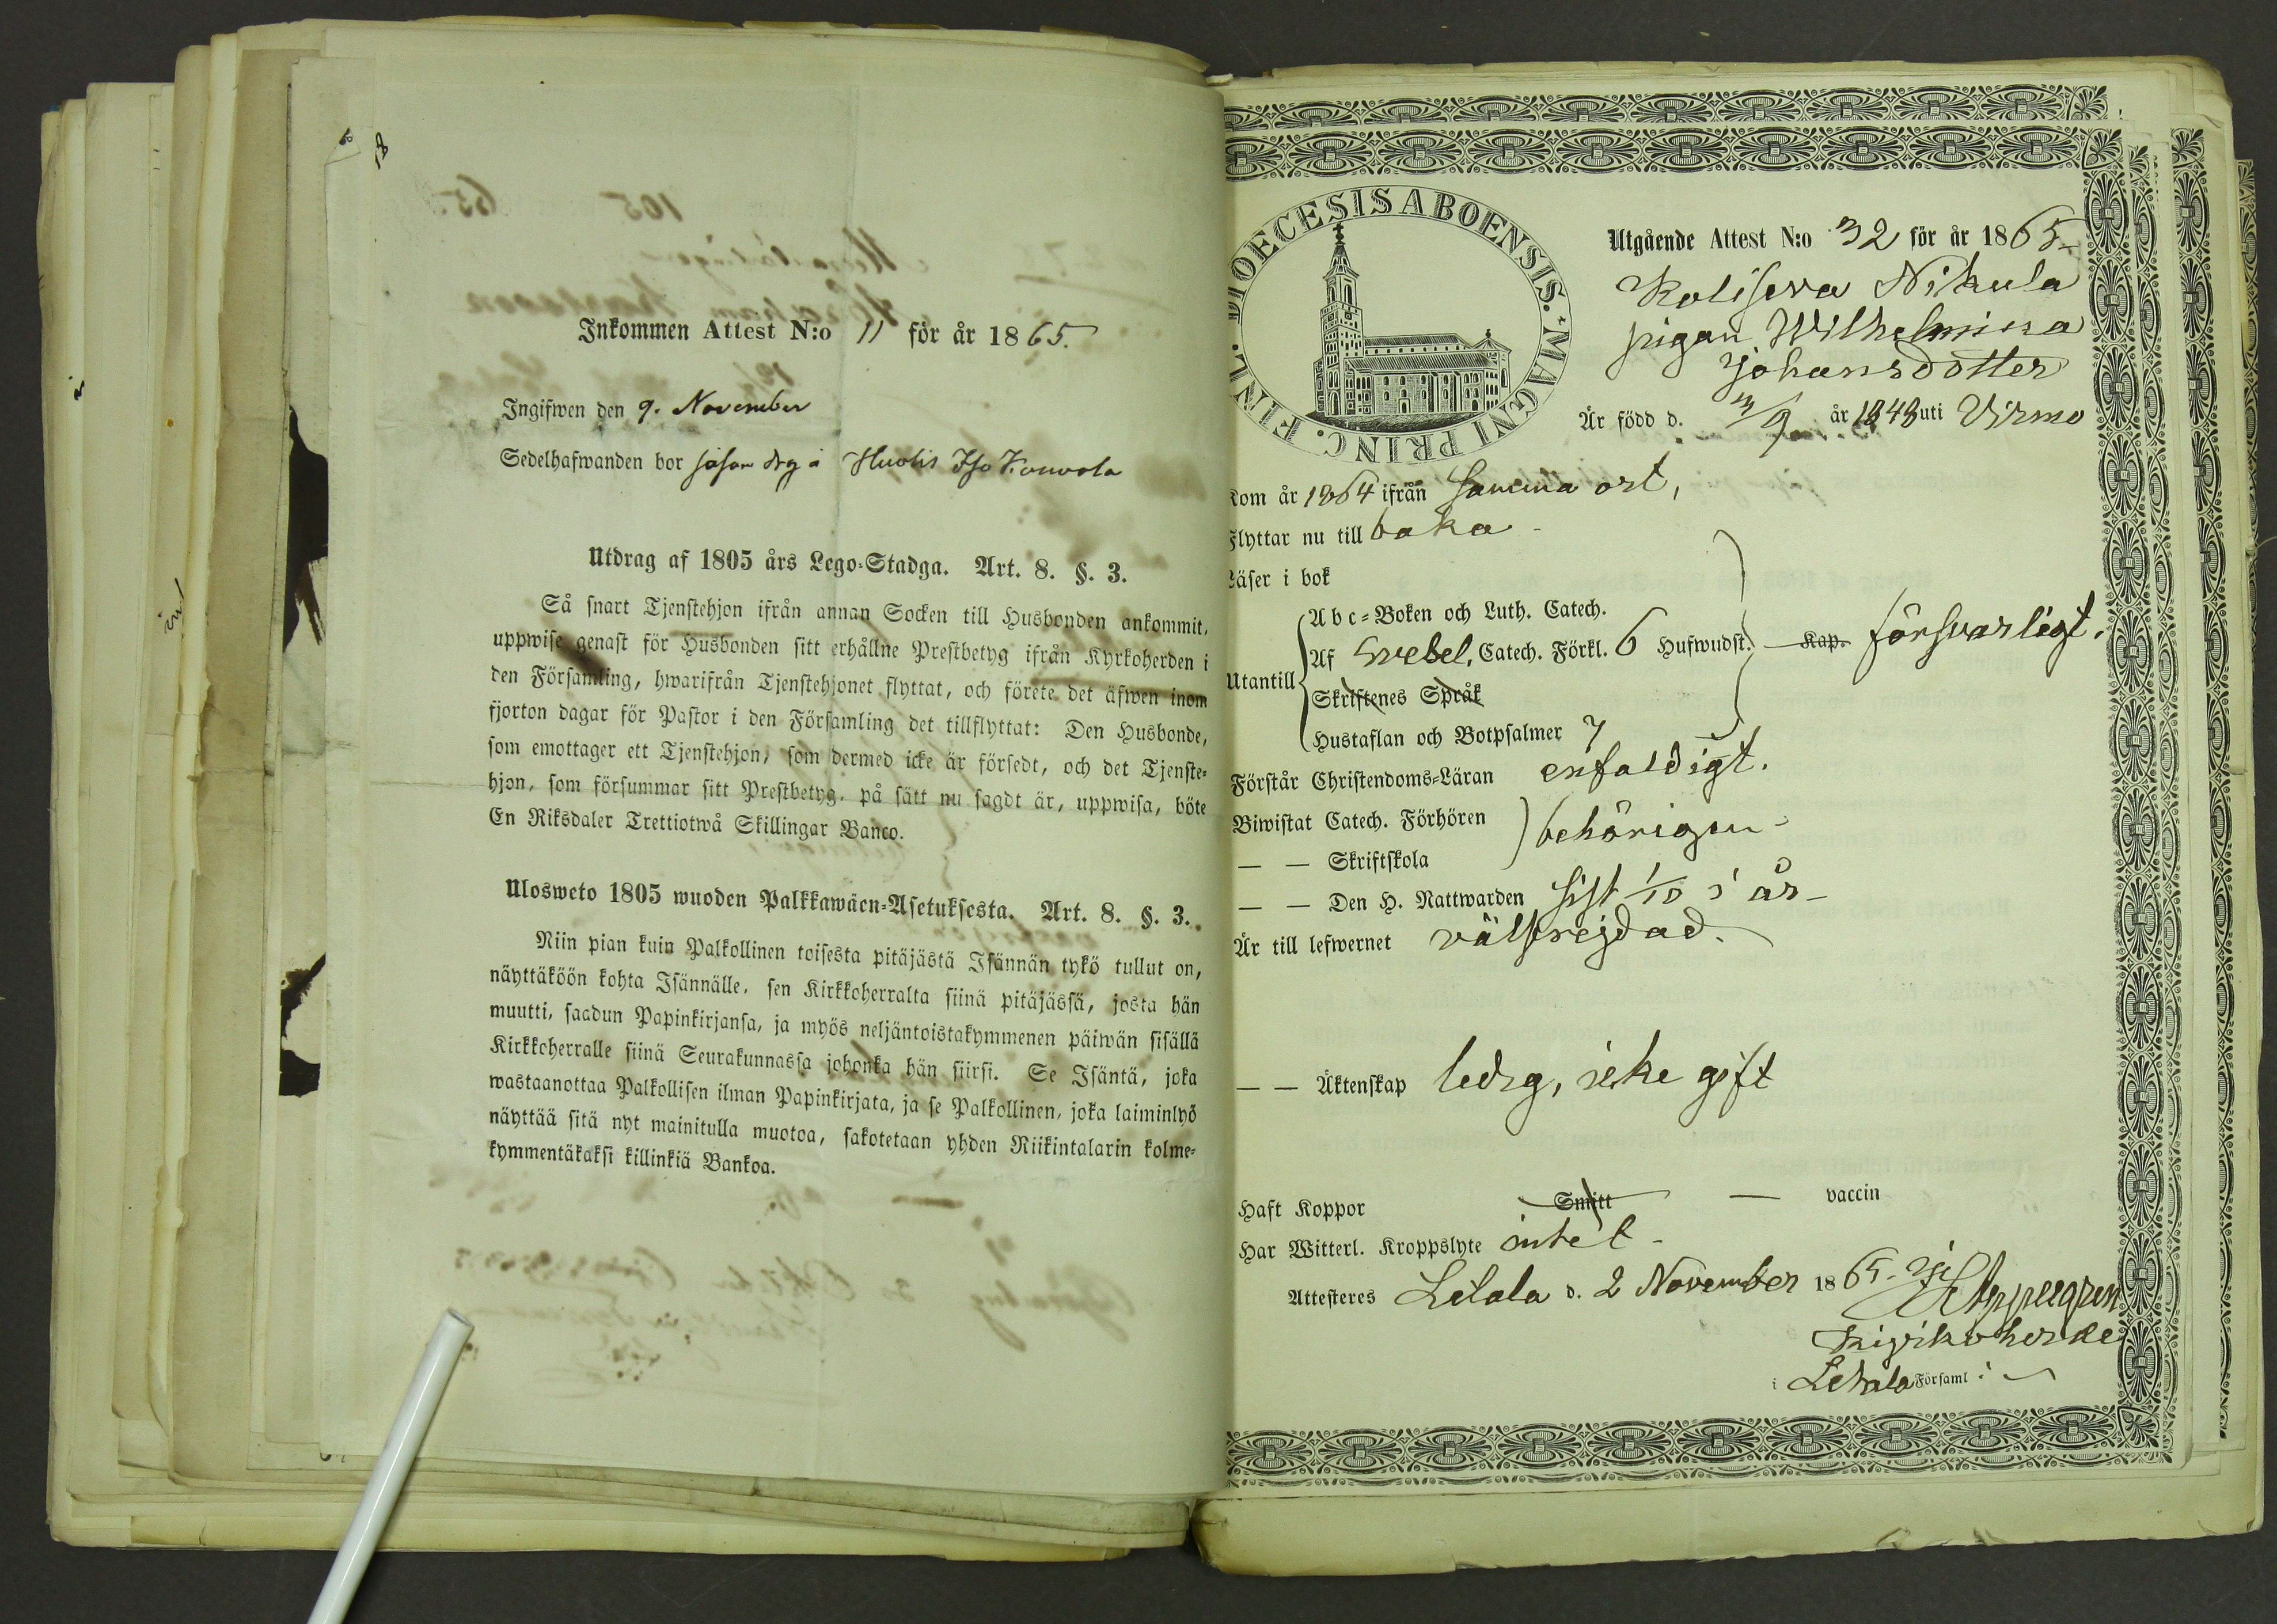 Inkommen Attest N:o 11 för år 1865.
Ingifwen den 9. November
Sedelhafwanden bor såsom drg å Huolis Iso Kouvola
Utdrag af 1805 års Lego-Stadga. Art. 8. §. 3.
Så snart Tjenstehjon ifrån annan Socken till Husbonden ankommit,
uppwise genast för Husbonden sitt erhållne Prestbetyg ifrån Kyrkoherden i
den Församling, hwarifrån Tjenstehjonet flyttat, och förete det äfwen inom
fjorton dagar för Pastor i den Församling det tillflyttat: Den Husbonde,
som emottager ett Tjenstehjon, som dermed icke är försedt, och det Tjenste-
hjon, som försummar sitt Prestbetyg, på sätt nu sagdt är, uppwisa, böte
En Riksdaler Trettiotwå Skillingar Banco.
Ulosweto 1805 wuoden Palkkawäen-Asetuksesta. Art. 8. §. 3.
Niin pian kuin Palkollinen toisesta pitäjästä Isännän tykö tullut on,
näyttäköön kohta Isännälle, sen Kirkkoherralta siinä pitäjässä, josta hän
muutti, saadun Papinkirjansa, ja myös neljäntoistakymmenen päiwän sisällä
Kirkkoherralle siinä Seurakunnassa johonka hän siirsi. Se Isäntä, joka
wastaanottaa Palkollisen ilman Papinkirjata, ja se Palkollinen, joka laiminlyö
näyttää sitä nyt mainitulla muotoa, sakotetaan yhden Riikintalarin kolme-
kymmentäkaksi killinkiä Bankoa.
DIOECESIS ABOENSIS. MAGNI PRINC. FINL.
Utgående Attest N:o 32 för år 1865
Koliseva Nikula
pigan Wilhelmina
Johansdotter
Är född d. 3/9 år 1848 uti Virmo
Kom år 1864 ifrån samma ort,
Flyttar nu till baka
Läser i bok
Abc-Boken och Luth. Catech.
Utantill Af Svebel. Catech. Förkl. 6 Hufwudst. Kap. försvarligt.
Skriftenes Språk
Hustaflan och Botpsalmer 7
Förstår Christendoms-Läran enfaldigt.
Biwistat Catech. Förhören behörigen
— — Skriftskola
— — Den H. Nattwarden sist 1/10 i år
Är till lefwernet välfrejdad.
— — Äktenskap ledig, icke gift
Haft Koppor Smitt — vaccin
Har Witterl. Kroppslyte intet
Attesteres Letala d. 2 November 1865.
Kyrkoherde
i Letala Församl: